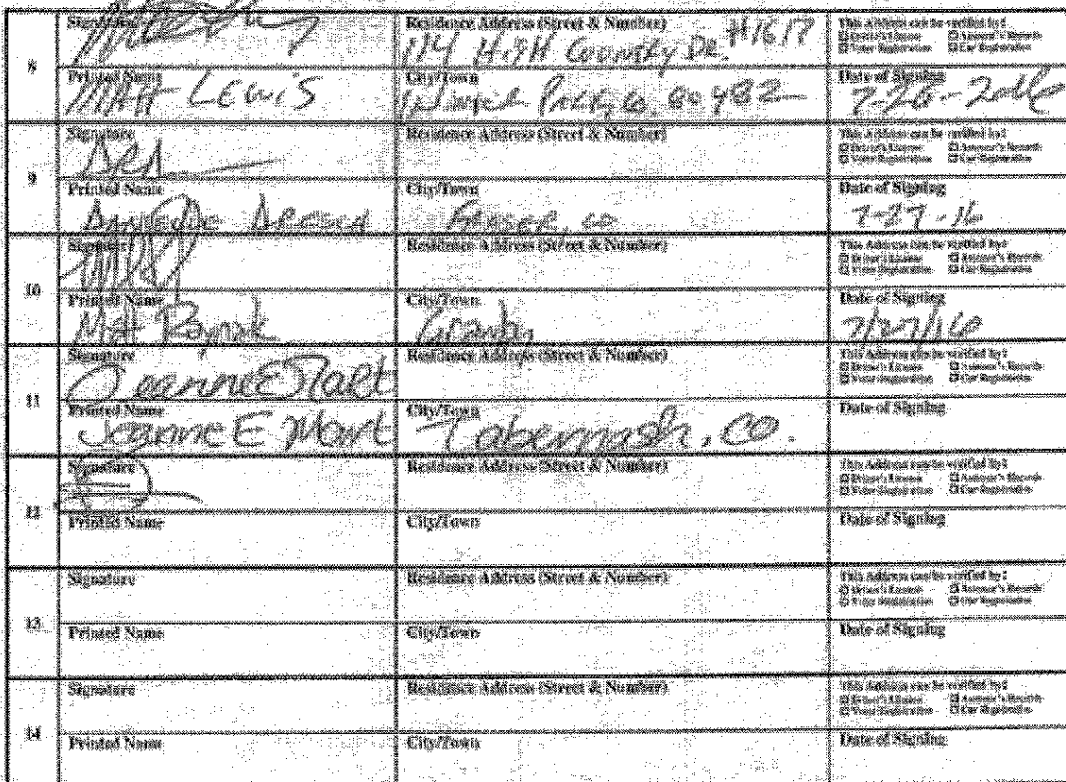 8 Signature Residence Address (Street & Number) This Address can be verified by:
114 High Country Dr. #1617 Driver's License Assessor's Records
Voter Registration Car Registration
Printed Name City/Town Date of Signing
Matt Lewis Winter Park, Co. 80482 7-26-2016
9 Signature Residence Address (Street & Number) This Address can be verified by:
Driver's License Assessor's Records
Voter Registration Car Registration
Printed Name City/Town Date of Signing
Fraser, co 7-27-16
10 Signature Residence Address (Street & Number) This Address can be verified by:
Driver's License Assessor's Records
Voter Registration Car Registration
Printed Name City/Town Date of Signing
Matt Granby 7/27/16
11 Signature Residence Address (Street & Number) This Address can be verified by:
Jeanne E Mart Driver's License Assessor's Records
Voter Registration Car Registration
Printed Name City/Town Date of Signing
Jeanne E Mart Tabernash, CO.
12 Signature Residence Address (Street & Number) This Address can be verified by:
Driver's License Assessor's Records
Voter Registration Car Registration
Printed Name City/Town Date of Signing
13 Signature Residence Address (Street & Number) This Address can be verified by:
Driver's License Assessor's Records
Voter Registration Car Registration
Printed Name City/Town Date of Signing
14 Signature Residence Address (Street & Number) This Address can be verified by:
Driver's License Assessor's Records
Voter Registration Car Registration
Printed Name City/Town Date of Signing